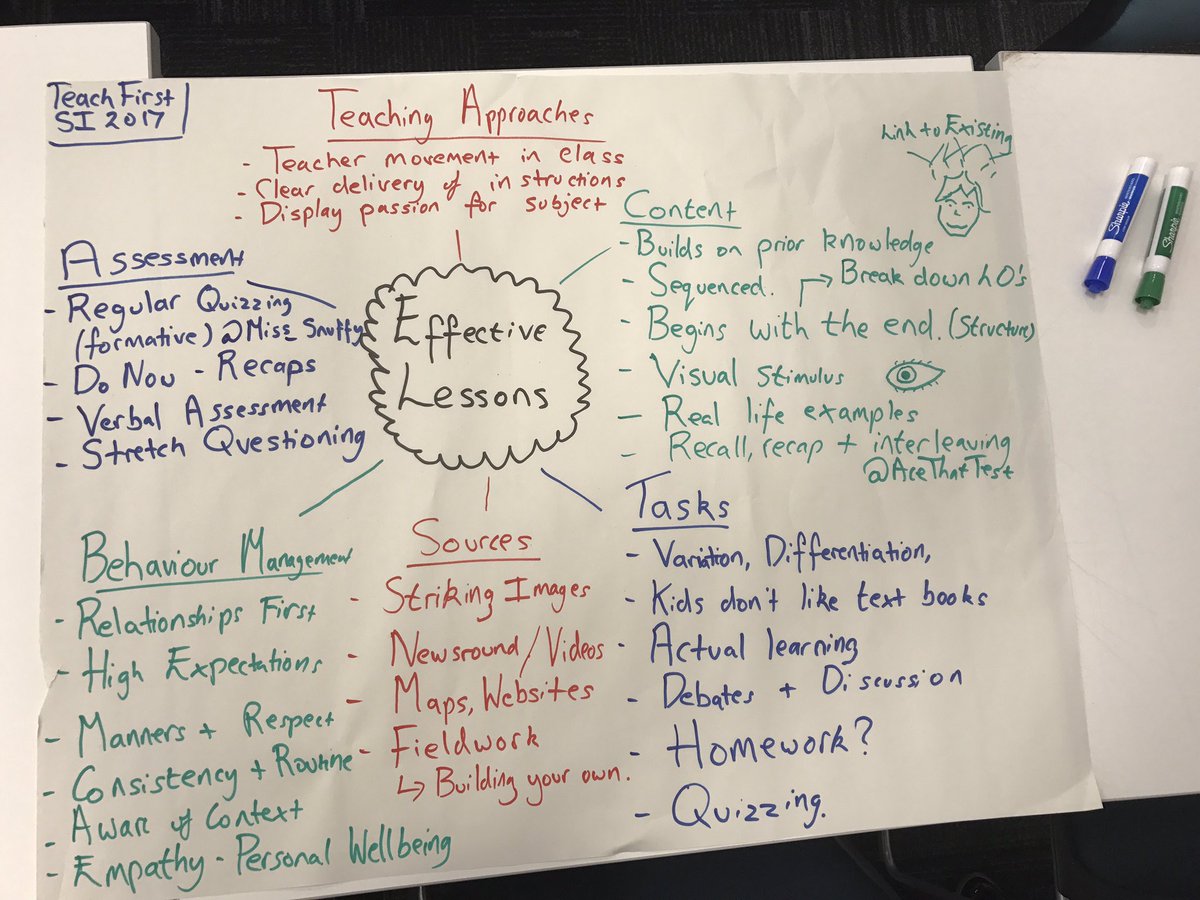 TeachFirst
SI 2017
Teaching Approaches
- Teacher movement in class
- Clear delivery of instructions
- Display passion for subject
Link to Existing
Content
- Builds on prior knowledge
- Sequenced.
→ Break down LO's
- Begins with the end. (Structure)
- Visual Stimulus
- Real life examples
- Recall, recap + interleaving
@AceThatTest
Assessment
- Regular Quizzing
(formative) @Miss_Snuffy
- Do Now - Recaps
- Verbal Assessment
- Stretch Questioning
Effective
Lessons
Behaviour Management
- Relationships First
- High Expectations
- Manners + Respect
- Consistency + Routine
- Aware of Context
- Empathy - Personal Wellbeing
Sources
- Striking Images
- Newsround/Videos
- Maps, Websites
- Fieldwork
↳ Building your own.
Tasks
- Variation, Differentiation,
- Kids don't like text books
- Actual learning
- Debates + Discussion
- Homework?
- Quizzing.
Sharpie
Sharpie